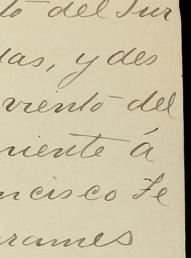 to del Sur
das, y des
viento del
niente á
ncisco Fe
rames